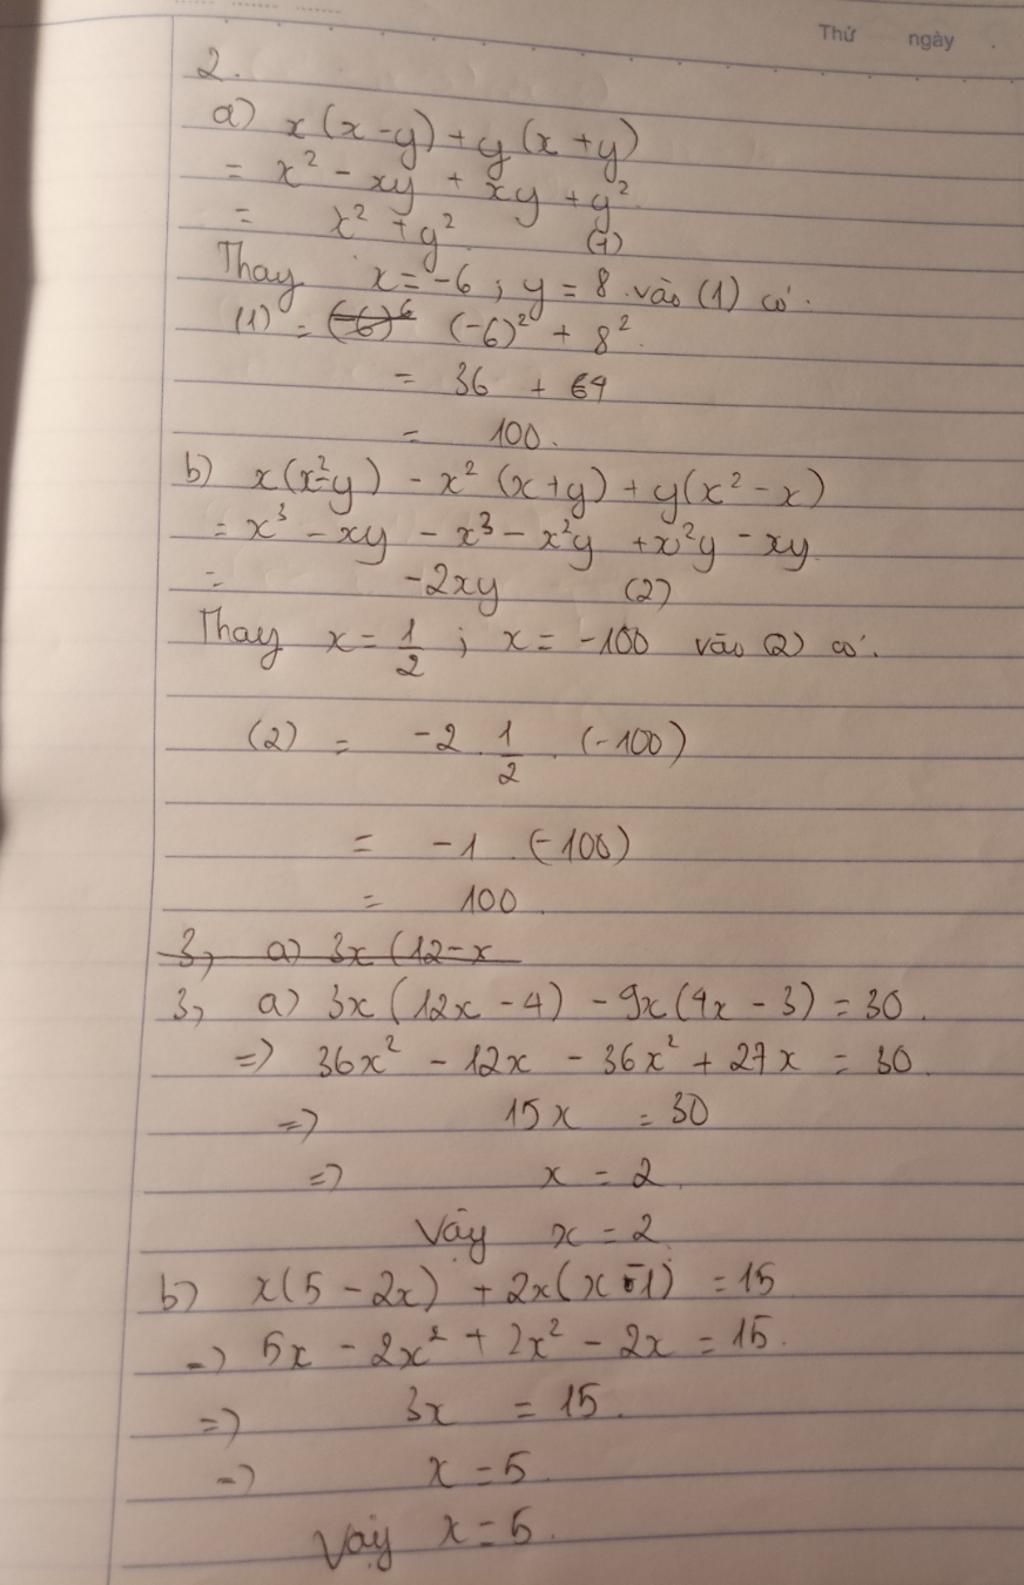 Thứ ngày
2.
a) x(x-y)+y(x+y)
= x² - xy + xy + y²
= x² + y² (1)
Thay x = -6 ; y = 8 vào (1) có:
(1) = (-6)⁶ (-6)² + 8²
= 36 + 64
= 100.
b) x(x²-y) - x² (x+y) + y(x² - x)
= x³ - xy - x³ - x²y + x²y - xy
= -2xy (2)
Thay x = 1/2 ; x = -100 vào (2) có:
(2) = -2 . 1/2 . (-100)
= -1 . (-100)
= 100.
3, a) 3x (12-x
3, a) 3x (12x - 4) - 9x(4x - 3) = 30.
=> 36x² - 12x - 36x² + 27x = 30.
=> 15x = 30
=> x = 2.
Vậy x = 2.
b) x(5 - 2x) + 2x(x-1) = 15
=> 5x - 2x² + 2x² - 2x = 15.
=> 3x = 15.
=> x = 5.
Vậy x = 5.